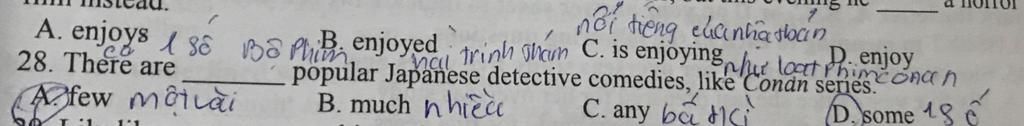 instead.
this evening he ______ a horror
nổi tiếng của nhà
A. enjoys B. enjoyed C. is enjoying D. enjoy
có 1 số Bộ phim hài trinh thám như loạt phim conan
28. There are ______ popular Japanese detective comedies, like Conan series.
A. few một vài B. much nhiều C. any bất kì D. some 1 số